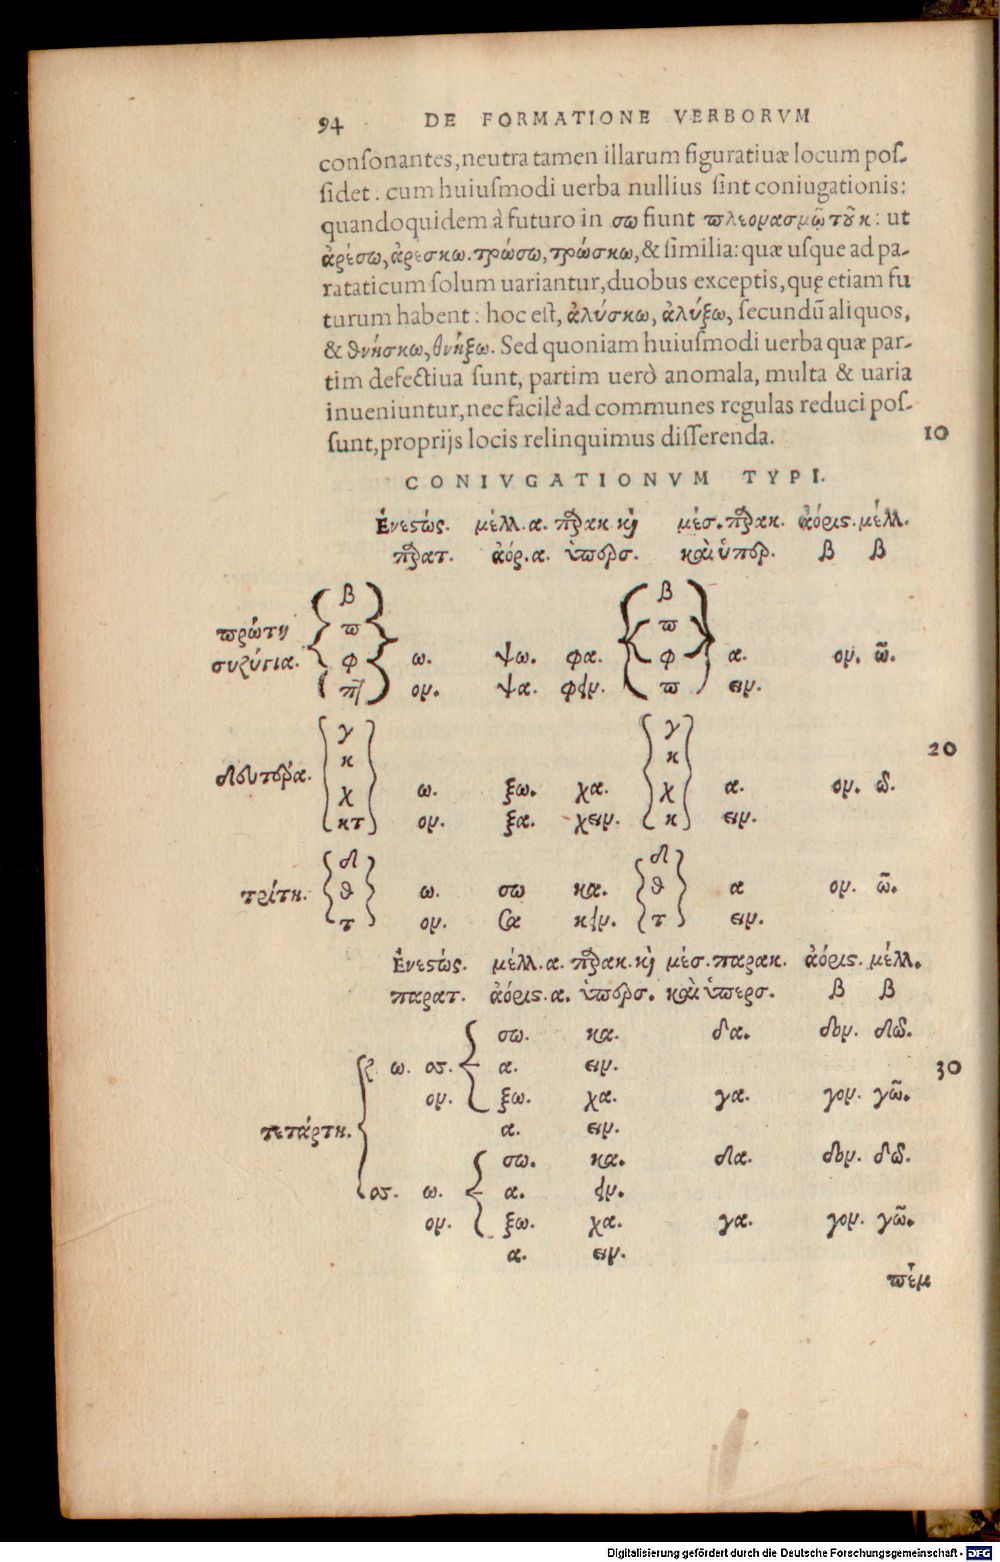 94 DE FORMATIONE VERBORVM
conſonantes, neutra tamen illarum figuratiuæ locum poſ-
ſidet: cum huiuſmodi uerba nullius ſint coniugationis:
quandoquidem à futuro in σω fiunt πλεονασμῷ τοῦ κ: ut
ἀρέσω, ἀρέσκω. τρώσω, τρώσκω, & ſimilia: quæ uſque ad pa-
rataticum ſolum uariantur, duobus exceptis, quę etiam fu
turum habent: hoc eſt, ἀλύσκω, ἀλύξω, ſecundũ aliquos,
& θνήσκω, θνήξω. Sed quoniam huiuſmodi uerba quæ par-
tim defectiua ſunt, partim uerò anomala, multa & uaria
inueniuntur, nec facilè ad communes regulas reduci poſ-
ſunt, proprijs locis relinquimus diſſerenda. 10
CONIVGATIONVM TYPI.
Ἐνεστώς. μέλλ. α. παρακ. καὶ μέσ. παρακ. ἀόρισ. μέλλ.
παρατ. ἀόρ. α. ὑπερσ. καὶ ὑπερ. β β
β β
πρώτη π π
συζυγία. φ ω. ψω. φα. φ α. ον. ῶ.
πτ ον. ψα. φειν. π ειν.
γ γ
κ κ 20
δευτέρα. χ ω. ξω. χα. χ α. ον. ῶ.
κτ ον. ξα. χειν. κ ειν.
δ δ
τρίτη. θ ω. σω κα. θ α ον. ῶ.
τ ον. σα κειν. τ ειν.
Ἐνεστώς. μέλλ. α. παρακ. καὶ μέσ. παρακ. ἀόρισ. μέλλ.
παρατ. ἀόρισ. α. ὑπερσ. καὶ ὑπερσ. β β
σω. κα. δα. δον. δῶ.
ζ ω. σσ. α. ειν. 30
ον. ξω. χα. γα. γον. γῶ.
τετάρτη. α. ειν.
σω. κα. δα. δον. δῶ.
σσ. ω. α. ειν.
ον. ξω. χα. γα. γον. γῶ.
α. ειν.
πέμ
Digitalisierung gefördert durch die Deutsche Forschungsgemeinschaft - DFG